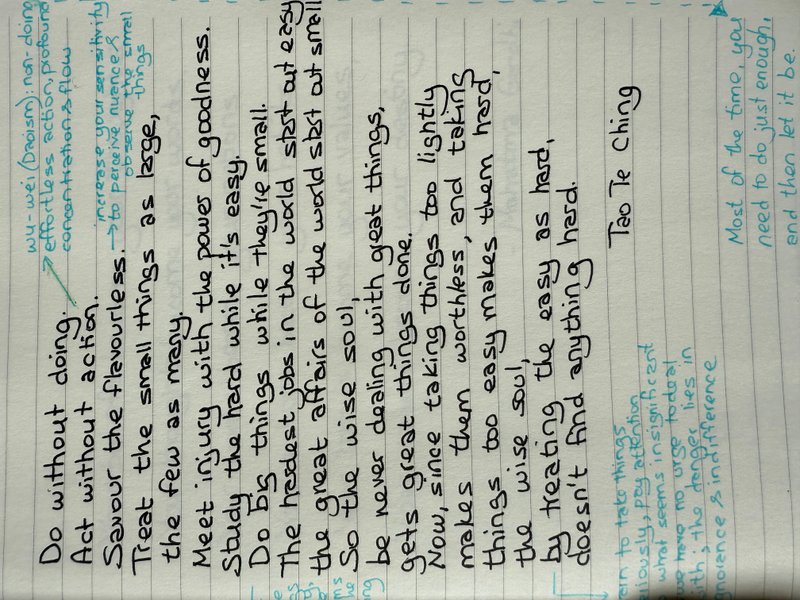 wu-wei (Daoism): non-doing
→ effortless action, profound
concentration & flow
Do without doing.
Act without action.
increase your sensitivity
→ to perceive nuance &
observe the small
things
Savour the flavourless.
Treat the small things as large,
the few as many.
Meet injury with the power of goodness.
Study the hard while it's easy.
Do big things while they're small.
The hardest jobs in the world start out easy
the great affairs of the world start out small
So the wise soul,
be never dealing with great things,
gets great things done.
Now, since taking things too lightly
makes them worthless, and taking
things too easy makes them hard,
the wise soul,
by treating the easy as hard,
doesn't find anything hard.
Tao Te Ching
to take things
pay attention
what seems insignificant
we have no urge to deal
with; the danger lies in
ignorance & indifference
Most of the time, you
need to do just enough,
and then let it be.